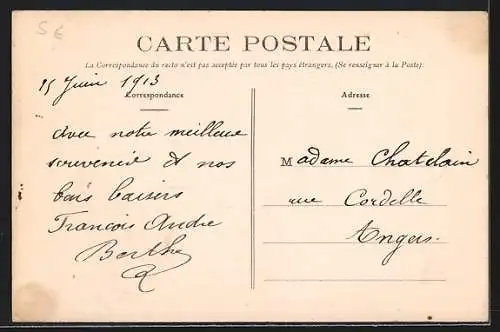 5€
CARTE POSTALE
La Correspondance du recto n'est pas acceptée par tous les pays étrangers. (Se renseigner à la Poste).
15 Juin 1913
Correspondance
Adresse
avec notre meilleur
souvenir et nos
bons baisers
François André
Berthe
Madame Chatelain
rue Cordelle
Angers.